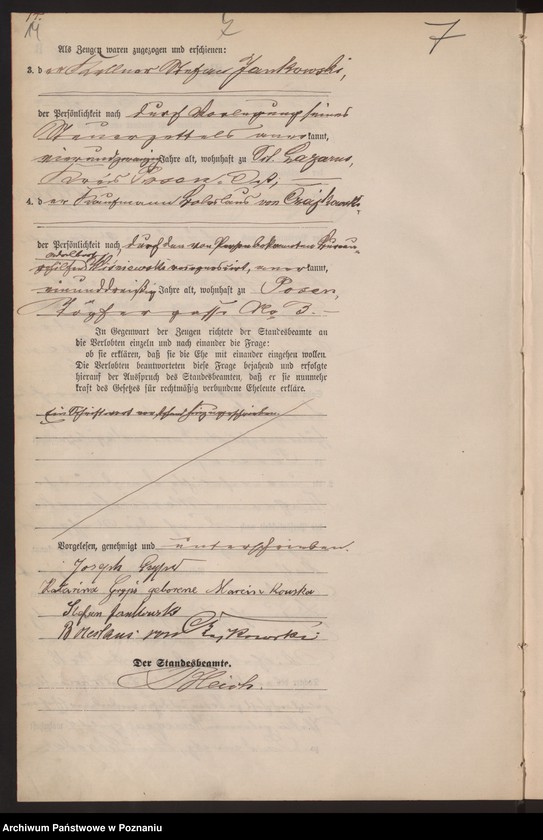 14
7
7
Als Zeugen waren zugezogen und erschienen:
3. der Kellner Stefan Jankowski,
der Persönlichkeit nach durch Vorlegung seines
Steuerzettels anerkannt,
vierundzwanzig Jahre alt, wohnhaft zu St. Lazarus,
Kreis Posen Ost,
4. der Kaufmann Boleslaus von
der Persönlichkeit nach, durch den von Person bekannten
anerkannt,
einunddreißig Jahre alt, wohnhaft zu Posen,
Töpfergasse No 3.
In Gegenwart der Zeugen richtete der Standesbeamte an
die Verlobten einzeln und nach einander die Frage:
ob sie erklären, daß sie die Ehe mit einander eingehen wollen.
Die Verlobten beantworteten diese Frage bejahend und erfolgte
hierauf der Ausspruch des Standesbeamten, daß er sie nunmehr
kraft des Gesetzes für rechtmäßig verbundene Eheleute erkläre.
Vorgelesen, genehmigt und unterschrieben.
Joseph
geborene Marcinkowska
Stefan Jankowski
Boleslaus von
Der Standesbeamte.
Archiwum Państwowe w Poznaniu